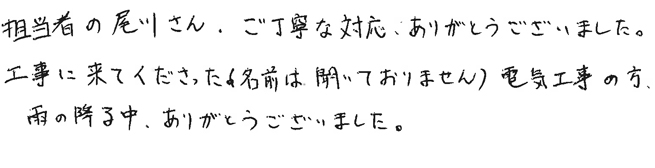 担当者の尾川さん、ご丁寧な対応、ありがとうございました。
工事に来てくださった(名前は聞いておりません)電気工事の方、
雨の降る中、ありがとうございました。